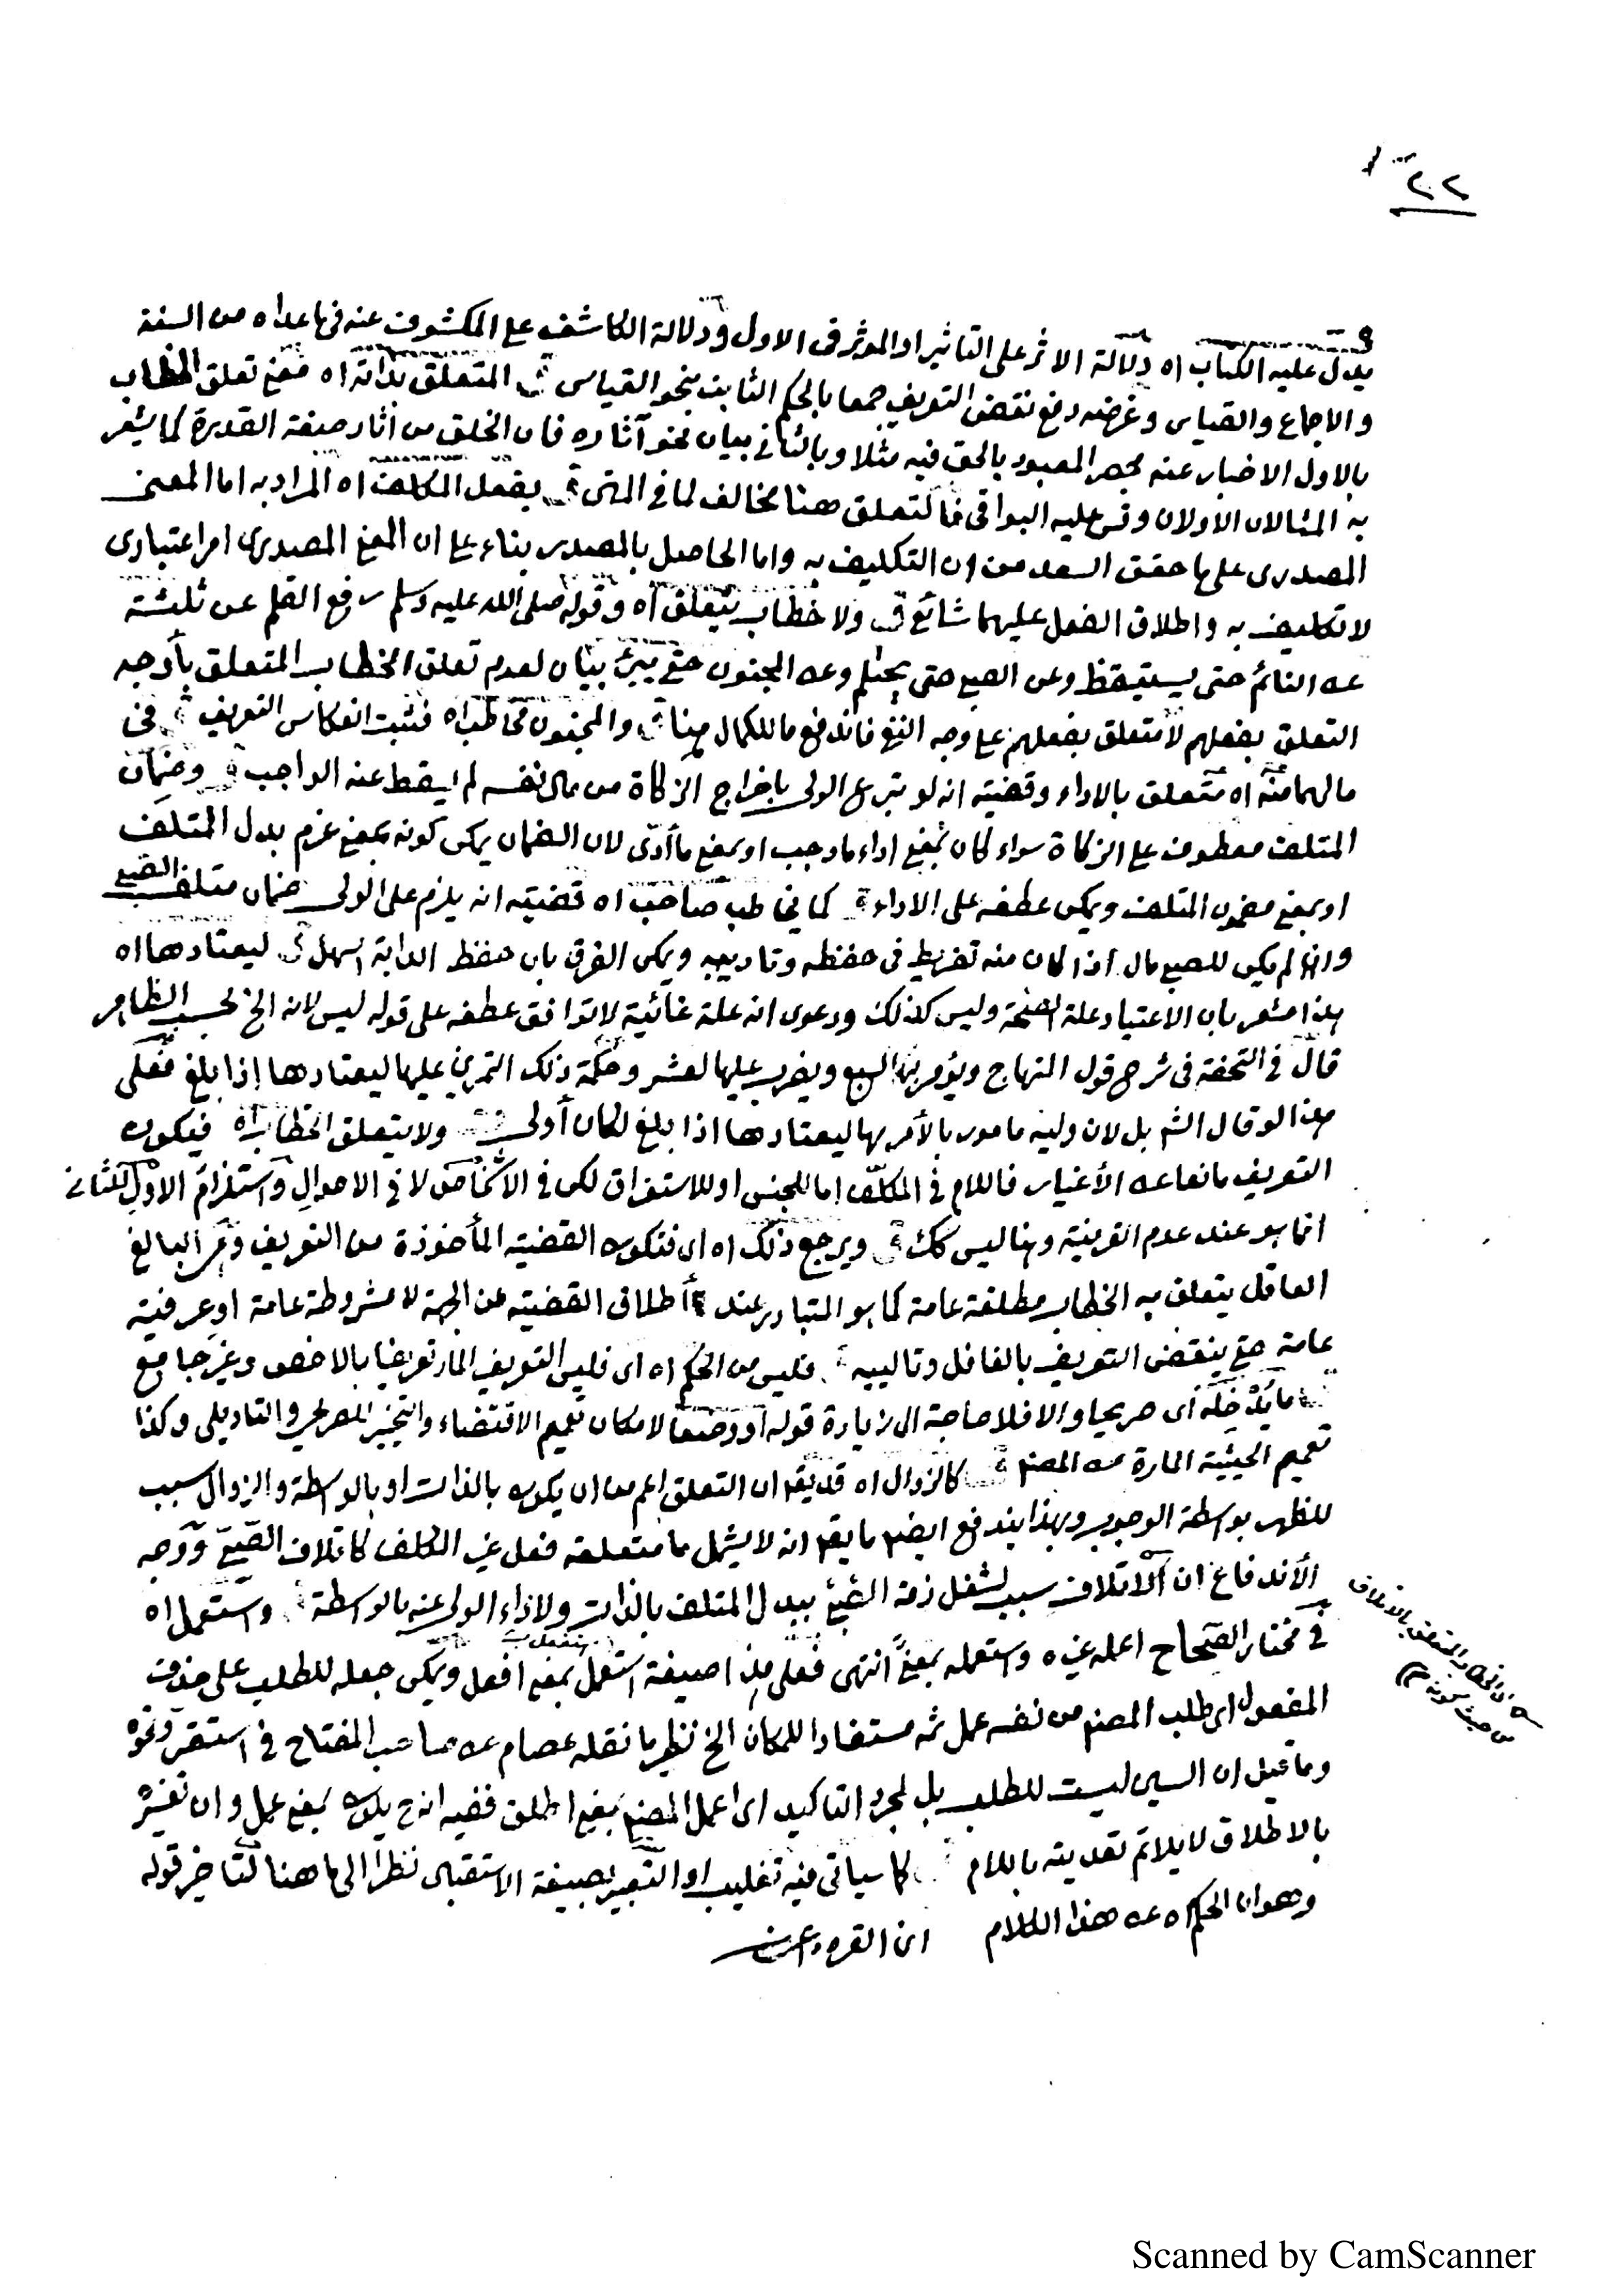 ٢٢
يدل عليه الكتاب اه دلالة الاثر على التاثير او المؤثر فى الاول ودلالة الكاشف على المكشوف عنه فيما عداه من السنة
والاجماع والقياس وغرضه دفع نقض التعريف جمعا بالحكم الثابت بنحو القياس المتعلق بذاته اه فمعنى تعلق الخطاب
بالاول الاخبار عنه بحصر المعبود بالحق فيه مثلا وبالثانى بيان نحو آثاره فان الخلق من اثار صفة القدرة كما يشعر
به المثالان الاولان وقس عليه البواقى فالتعلق هنا مخالف لما فى المتن بفعل المكلف اه المراد به اما المعنى
المصدرى على ما حقق السعد من ان التكليف به واما الحاصل بالمصدر بناء على ان المعنى المصدرى امر اعتبارى
لا تكليف به واطلاق الفعل عليهما شائع ولا خطاب يتعلق اه وقوله صلى الله عليه وسلم رفع القلم عن ثلثة
عن النائم حتى يستيقظ وعن الصبى حتى يحتلم وعن المجنون حتى يبرئ بيان لعدم تعلق الخطاب المتعلق بأوجه
التعلق بفعلهم لا متعلق بفعلهم على وجه النفى فاندفع ما للكمال هنا والمجنون مخاطب اه فثبت انعكاس التعريف فى
مالهما منه اه متعلق بالاداء وقضيته انه لو تبرع الولى باخراج الزكاة من مال نفسه لم يسقط عنه الواجب وضمان
المتلف معطوف على الزكاة سواء كان بمعنى اداء ما وجب او بمعنى ما أدّى لان الضمان يمكن كونه بمعنى غرم بدل المتلف
او بمعنى مضمون المتلف ويمكن عطفه على الاداء كما يخاطب صاحب اه قضيته انه يلزم على الولى ضمان متلف الصبى
وان لم يكن للصبى مال اذا كان منه تفريط فى حفظه وتاديبه ويمكن الفرق بان حفظ الدابة اسهل ليعتادها اه
هذا مشعر بان الاعتياد علة الصحة وليس كذلك ودعوى انه علة غائية لا توافق عطفه على قوله ليس لانه الخ بحسب الظاهر
قال فى التحفة فى شرح قول المنهاج ويؤمر بها لسبع ويضرب عليها لعشر وحكمة ذلك التمرين عليها ليعتادها إذا بلغ فعلى
هذا لو قال الشم بل لان وليه مامور بالأمر بها ليعتادها اذا بلغ لكان أولى ولا يتعلق الخطاب اه فيكون
التعريف مانعا عن الأغيار فاللام فى المكلّف اما للجنس او للاستغراق لكن فى الاشخاص لا فى الاحوال واستلزام الاول للثانى
انما هو عند عدم القرينة وهنا ليس كك ويرجع ذلك اه اى فتكون القضية المأخوذة من التعريف وهى البالغ
العاقل يتعلق به الخطاب مطلقة عامة كما هو المتبادر عند أطلاق القضية عن الجهة لا مشروطة عامة او عرفية
عامة حتى ينقض التعريف بالغافل وتالييه فليس من الحكم اه اى فليس التعريف المار تعريفا بالاخص وغير جامع
ما يُدْخِله أى صريحا والا فلا حاجة الى زيادة قوله او وضعا لامكان تعميم الاقتضاء والتخيير للصريحى والتاويلى وكذا
تعميم الحيثية المارة من المصنم كالزوال اه قد يقم ان التعلق اعم من ان يكون بالذات او بالواسطة والزوال سبب
للظهر بواسطة الوجوب وبهذا يندفع ايضم ما يقم انه لا يشمل ما متعلقه فعل غير المكلف كاتلاف الصبى ووجه
الأندفاع ان الاتلاف سبب لشغل ذمة الصبى ببدل المتلف بالذات ولاداء الولى عنه بالواسطة واستعمل اه
فى مختار الصحاح اعمله غيره واستعمله بمعنىً انتهى فعلى هذا صيغة استعمل بمعنى افعل ويمكن جعله للطلب على حذف
المفعول اى طلب المصنم من نفسه عمل ثم مستفادا للمكان الخ نظير ما نقله عصام عن صاحب المفتاح فى استقر ونحوه
وما قيل ان السين ليست للطلب بل لمجرد التاكيد اى اعمل المصنم بمعنى اطلق ففيه انه ح يكون بمعنى عمل وان تفسيره
بالاطلاق لا يلائم تعديته باللام كما سياتى فيه تغليب او التعبير بصيغة الاستقبال نظرا الى ما هنا لتاخير قوله
وهو ان الحكم اه عن هذا الكلام ابن القره داغى
من حيث كونه
Scanned by CamScanner